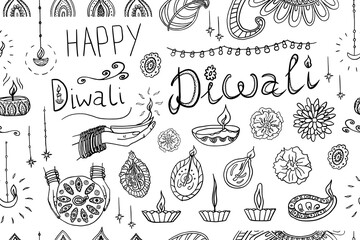 HAPPY
Diwali
Diwali